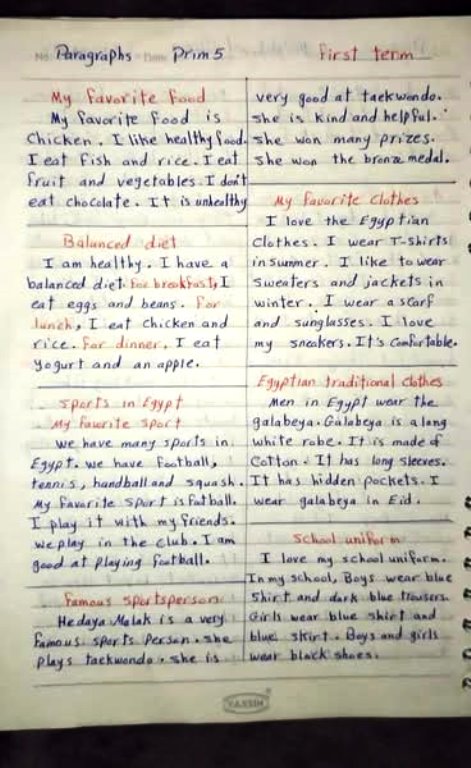 No. Paragraphs Date Prim 5 First term
My favorite food
My favorite food is
Chicken. I like healthy food.
I eat fish and rice. I eat
fruit and vegetables. I don't
eat chocolate. It is unhealthy
Balanced diet
I am healthy. I have a
balanced diet. For breakfast, I
eat eggs and beans. For
lunch, I eat chicken and
rice. For dinner, I eat
yogurt and an apple.
Sports in Egypt
My favorite sport
We have many sports in
Egypt. we have football,
tennis, handball and squash.
My favorite sport is football.
I play it with my friends.
we play in the club. I am
good at playing football.
Famous sportsperson
Hedaya Malak is a very
famous sports person. she
plays taekwondo. she is
very good at taekwondo.
she is kind and helpful.
she won many prizes.
she won the bronze medal.
My favorite clothes
I love the Egyptian
clothes. I wear T-shirts
in summer. I like to wear
sweaters and jackets in
winter. I wear a scarf
and sunglasses. I love
my sneakers. It's comfortable.
Egyptian traditional clothes
Men in Egypt wear the
galabeya. Galabeya is a long
white robe. It is made of
Cotton. It has long sleeves.
It has hidden pockets. I
wear galabeya in Eid.
School uniform
I love my school uniform.
In my school, Boys wear blue
Shirt and dark blue trousers.
Girls wear blue shirt and
blue skirt. Boys and girls
wear black shoes.
YASSIN